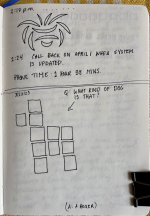 2:24 CALL BACK ON APRIL 1 WHEN SYSTEM
IS UPDATED.
PHONE TIME: 1 HOUR 38 MINS.
Q: WHAT KIND OF DOG
IS THAT?
(A: A BOXER)